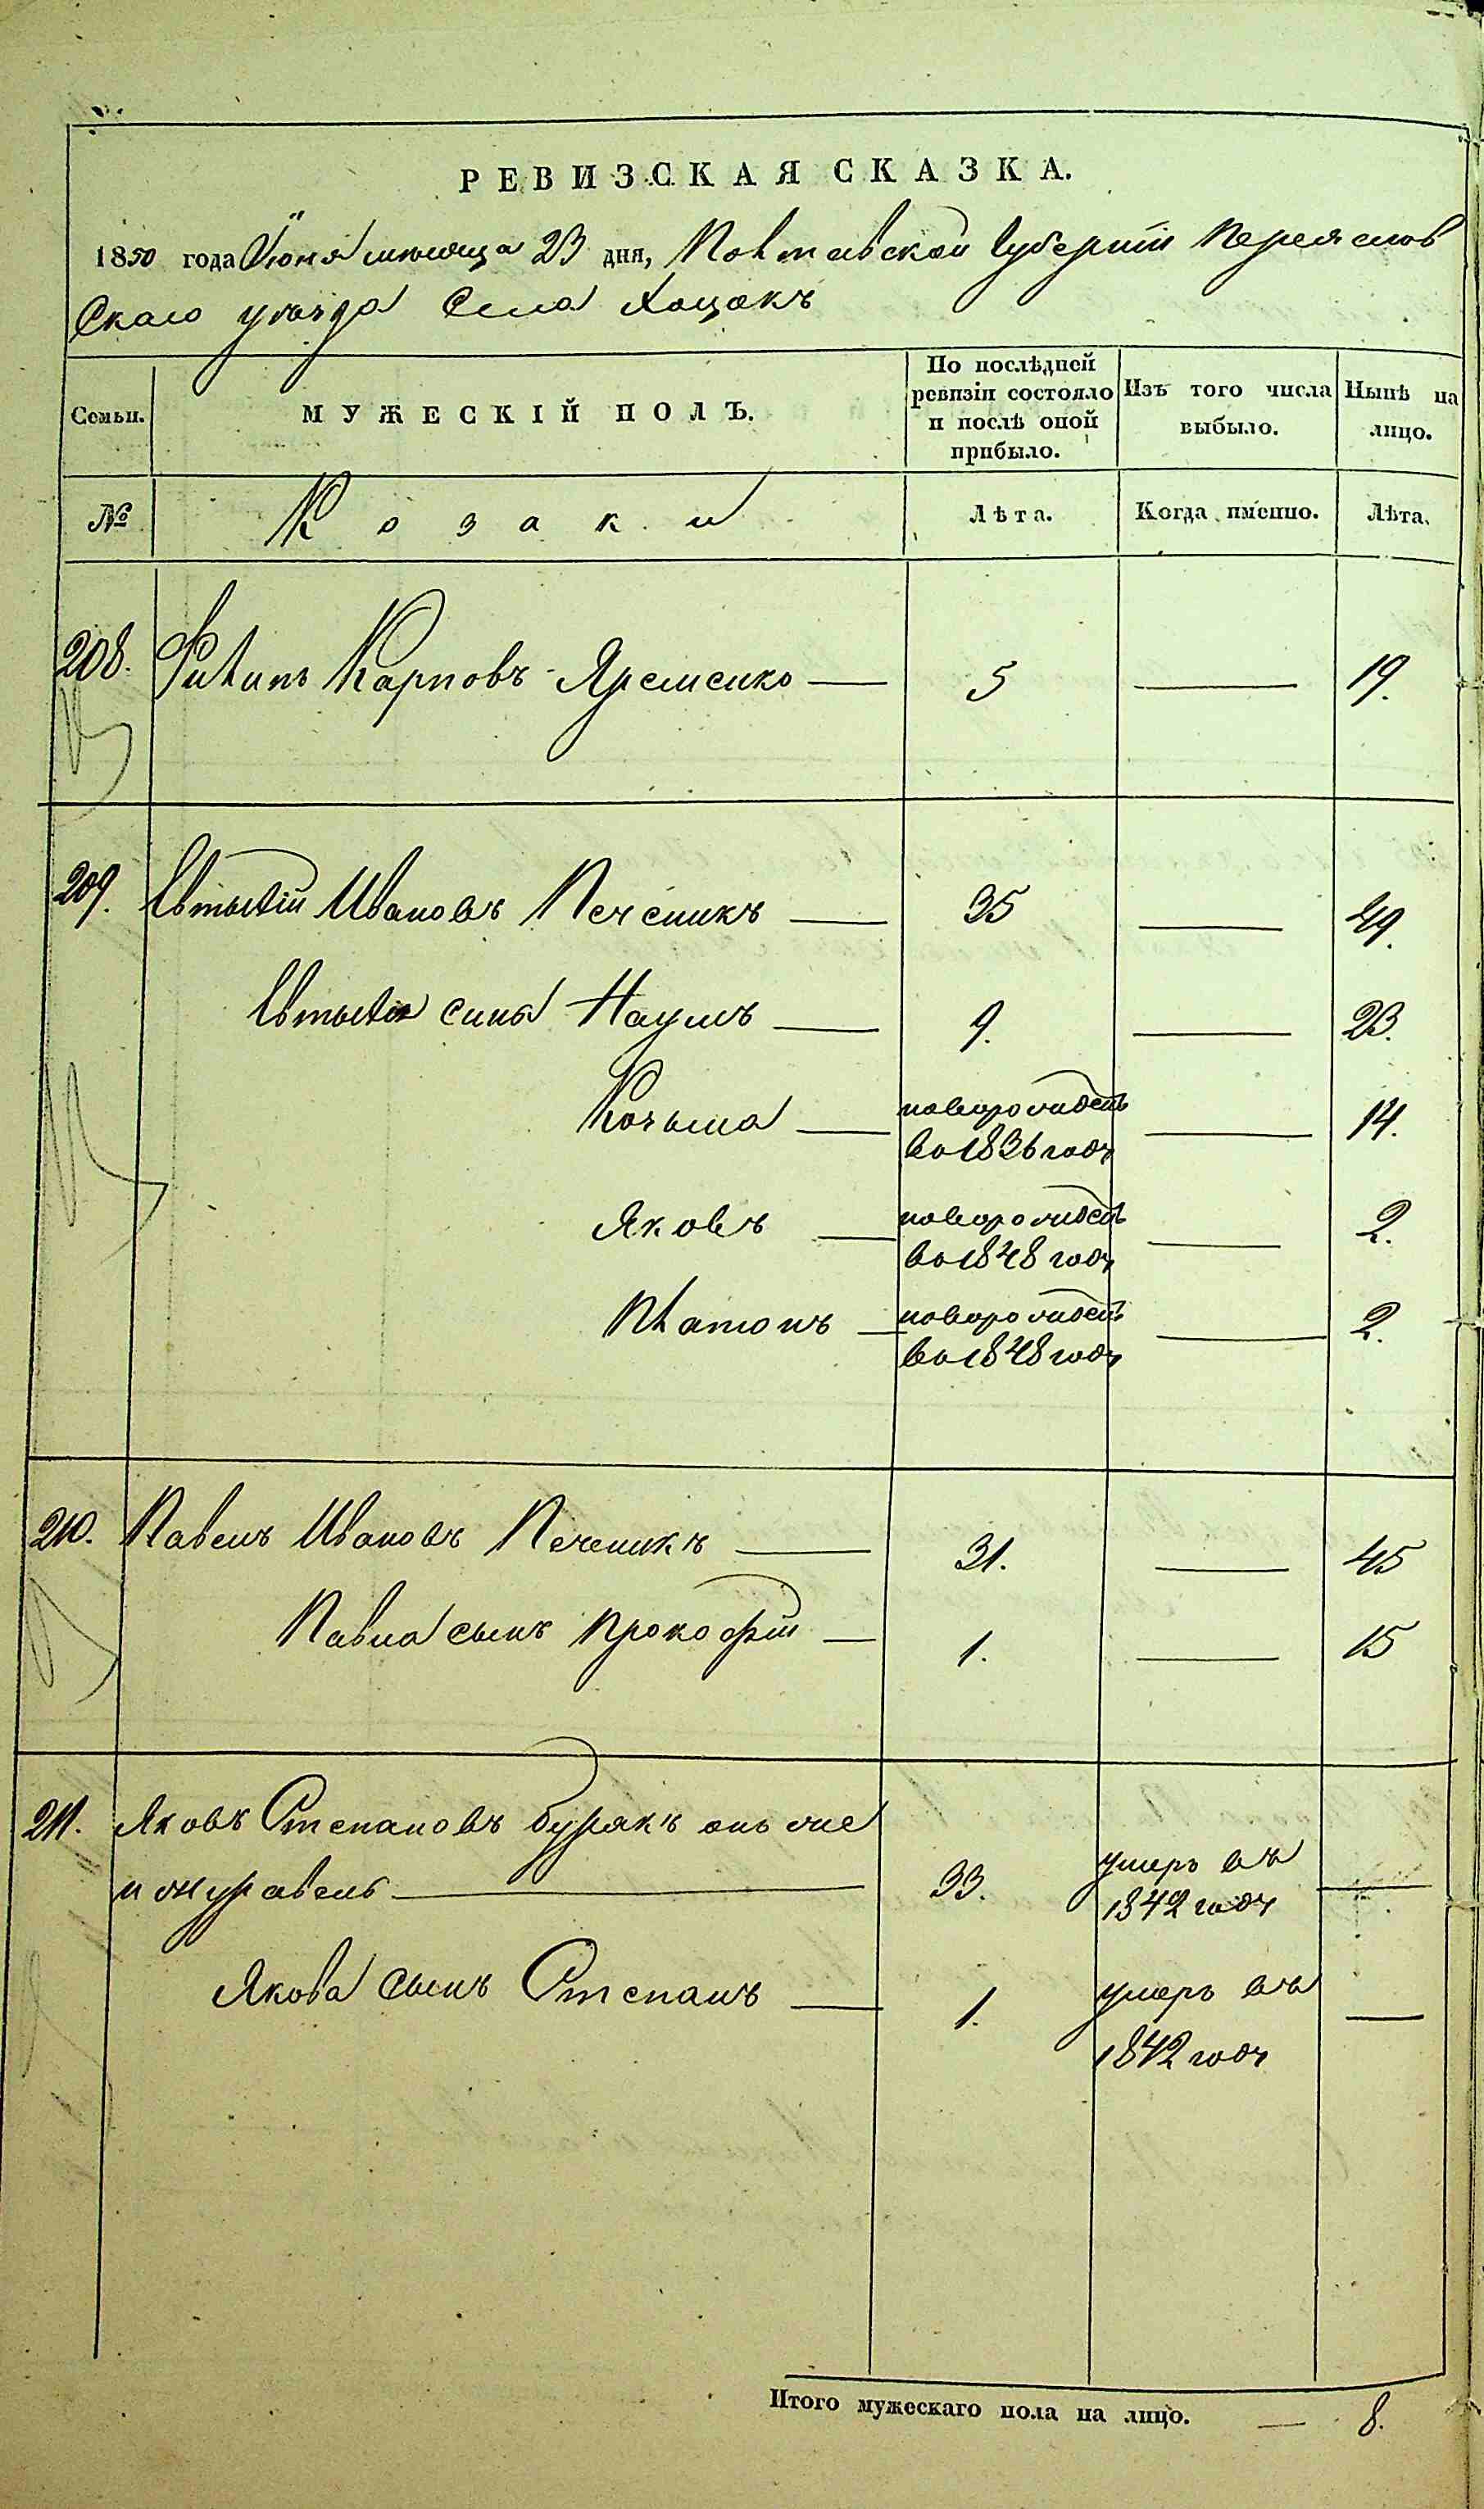 РЕВИЗСКАЯ СКАЗКА.
1850 года Июня мѣсяца 23 дня, Полтавской Губерніи Переяслов
Скаго уѣзда Села Хоцокъ
Семьи. МУЖЕСКІЙ ПОЛЪ. По послѣдней ревизіи состояло и послѣ оной прибыло. Изъ того числа выбыло. Нынѣ на лицо.
№ Козаки Лѣта. Когда именно. Лѣта.
208. Филипъ Карповъ Яременко — 5 — 19.
209. Евтыхій Ивановъ Печеникъ — 35 — 49.
Евтыхія сыны Наумъ — 9. — 23.
Козьма — новорожденъ — 14.
во 1836 годѣ
Яковъ — новорожденъ — 2.
во 1848 годѣ
Платонъ — новорожденъ — 2.
во 1848 годѣ
210. Павелъ Ивановъ Печеникъ — 31. — 45
Павла сынъ Прокофій — 1. — 15
211. Яковъ Степановъ Бурякъ онъ же
и журавель — 33. умеръ въ —
1842 годѣ
Якова сынъ Степанъ — 1. умеръ въ —
1842 годѣ
Итого мужескаго пола на лицо. — 8.